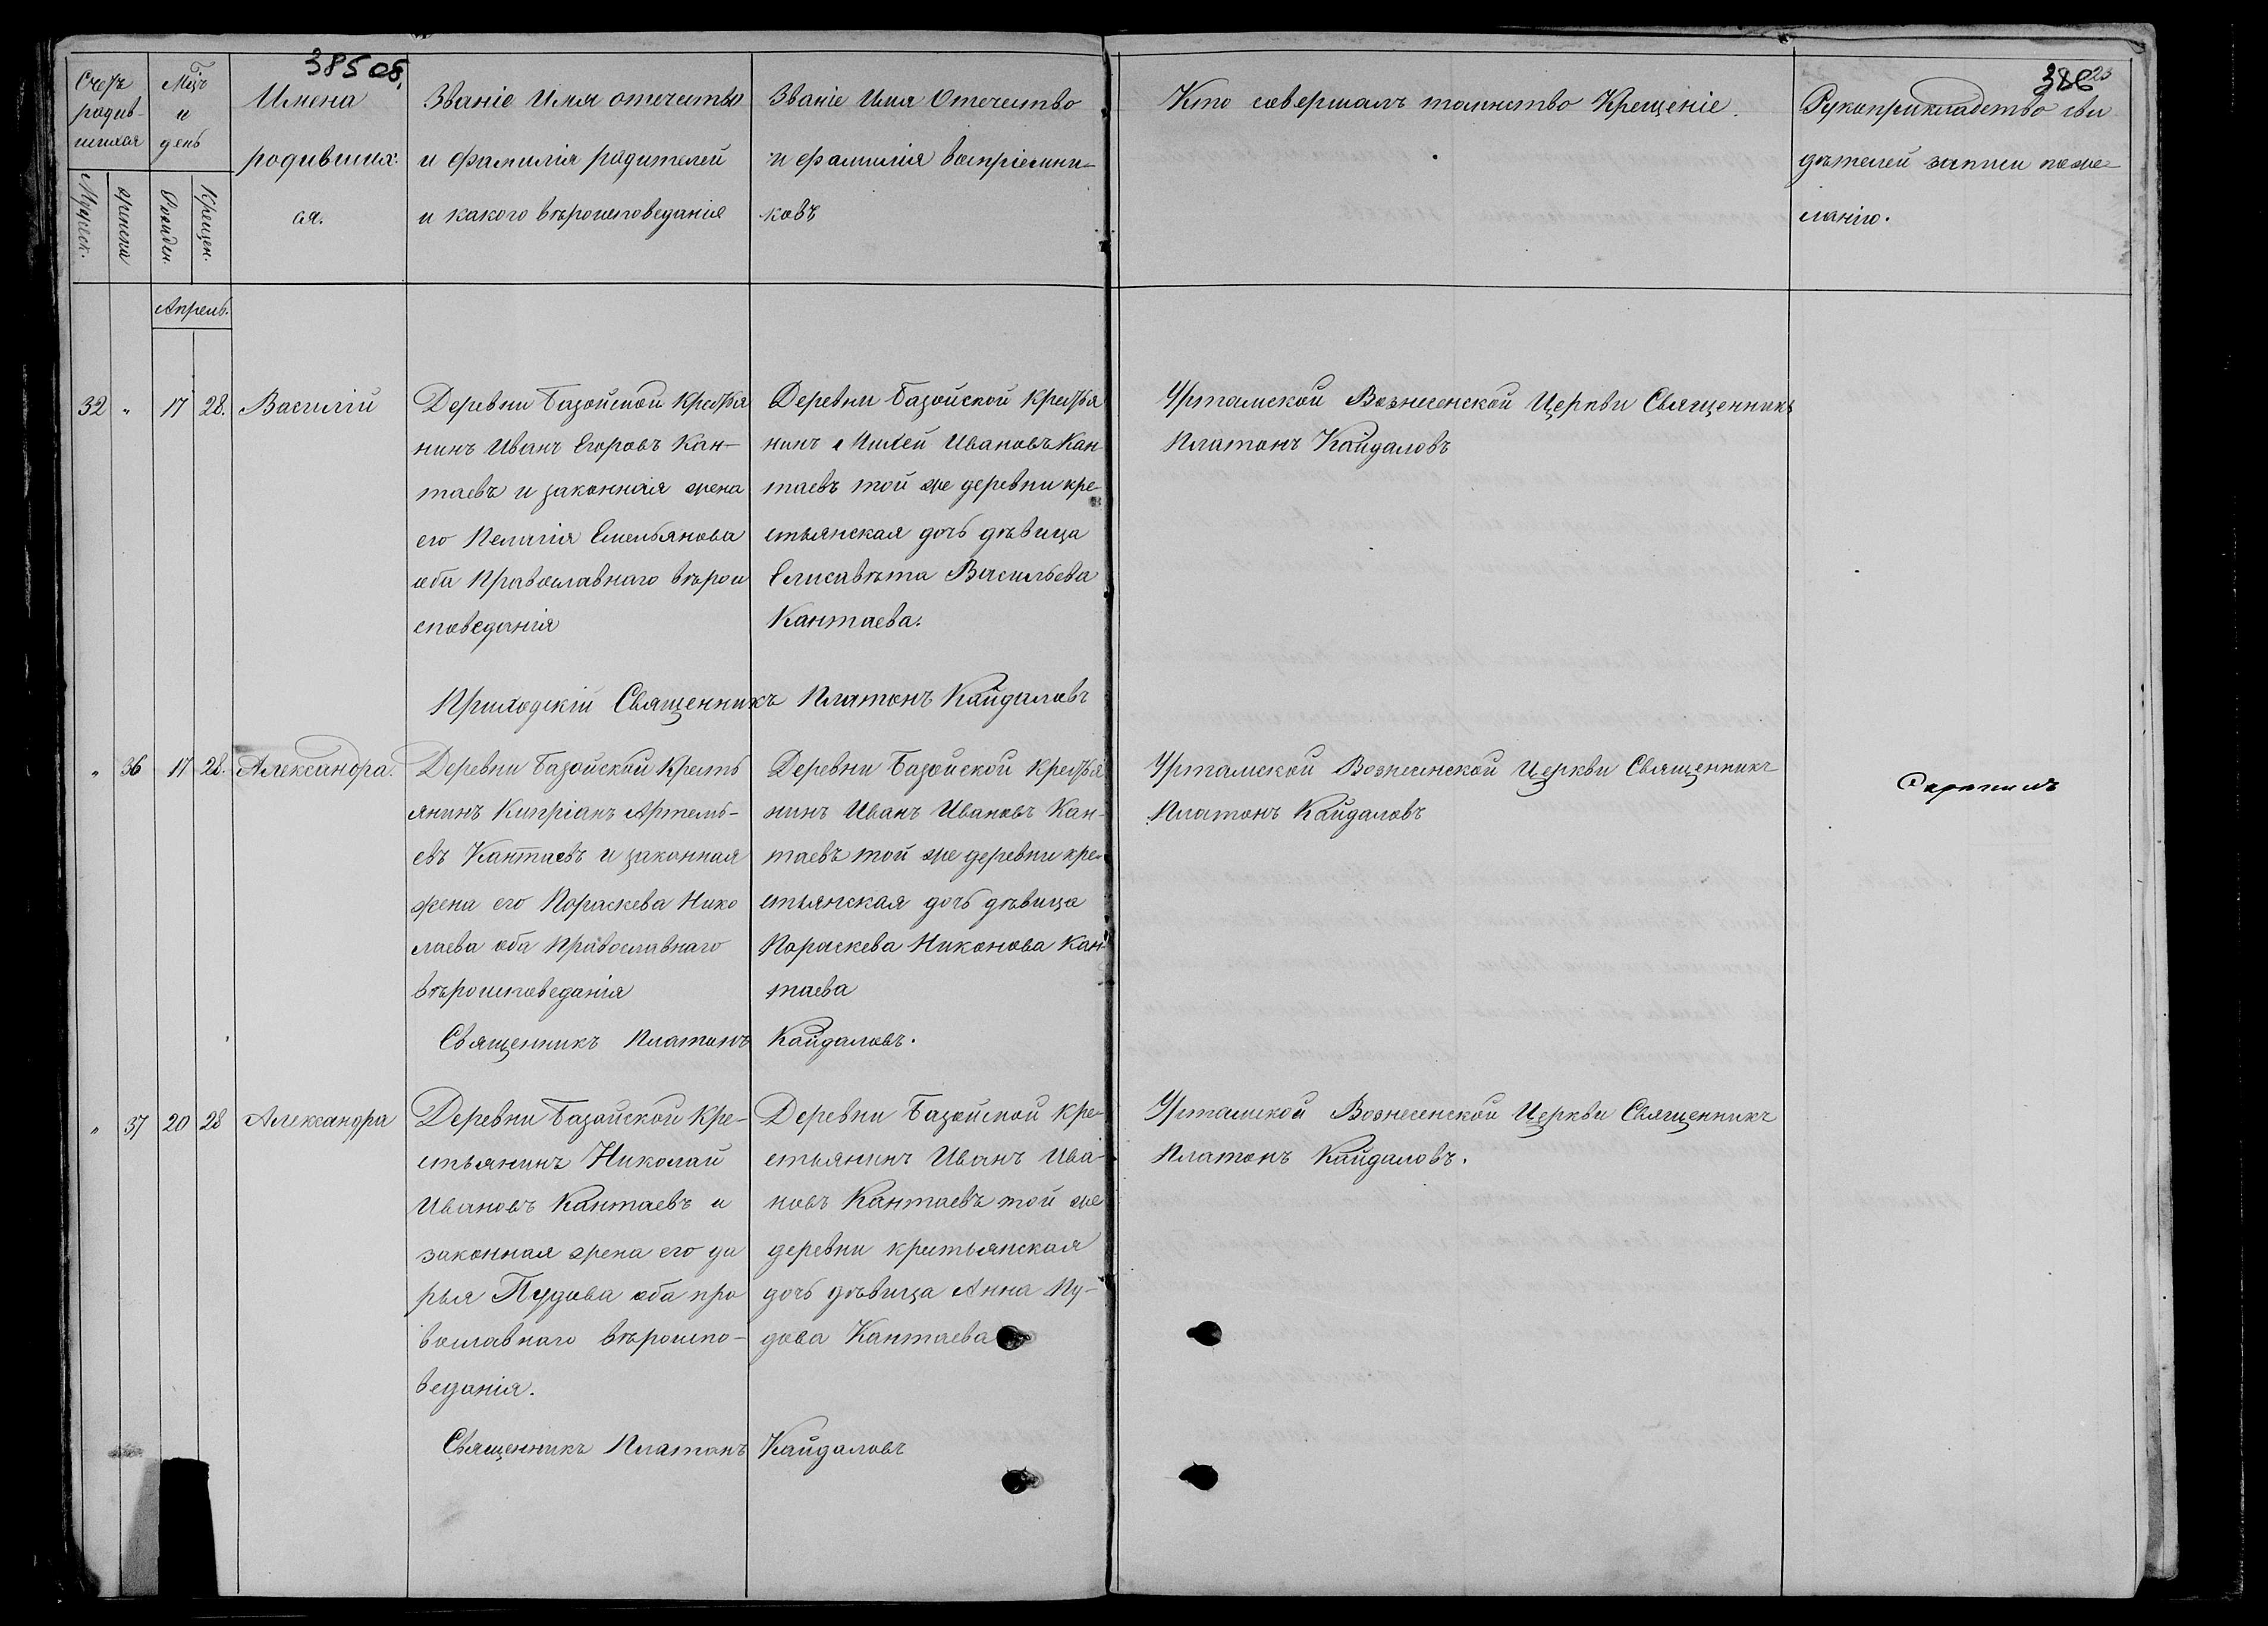 385 об.
386
23
Счетъ
родив-
шихся
Мцъ
и
день
Имена
родивших
ся.
Званіе Имя отечество
и фамилія родителей
и какого вѣроисповеданія
Званіе Имя Отечество
и фамилія воспріемни-
ковъ
Кто совершалъ таинство Крещеніе.
Рукоприкладство сви
дѣтелей записи поже-
ланію.
Мужеск.
женска
Рожден.
Крещен.
Апрель.
32 " 17 28. Василій
Деревни Базойской Крестья
нинъ Иванъ Егоровъ Кан-
таевъ и законная жена
его Пелагія Емельянова
оба Православнаго вѣрои
споведанія
Деревни Базойской Крестья
нинъ Михей Ивановъ Кан
таевъ той же деревни кре-
стьянская дочь дѣвица
Елисавѣта Васильева
Кантаева.
Уртамской Вознесенской Церкви Священникъ
Платонъ Кайдаловъ
Приходскій Священникъ Платонъ Кайдаловъ
" 36 17 28. Александра.
Деревни Базойской Кресть
янинъ Кипріанъ Артемь-
евъ Кантаевъ и законная
жена его Параскева Нико
лаева оба Православнаго
вѣроисповеданія
Деревни Базойской Крестья
нинъ Иванъ Ивановъ Кан-
таевъ той же деревни кре-
стьянская дочь дѣвица
Параскева Никонова Кан-
таева
Уртамской Вознесенской Церкви Священникъ
Платонъ Кайдаловъ
Священникъ Платонъ Кайдаловъ.
" 37 20 28 Александра
Деревни Базойской Кре-
стьянинъ Николай
Ивановъ Кантаевъ и
законная жена его да
рья Пудова оба пра
вославнаго вѣроиспо-
веданія.
Деревни Базойской Кре-
стьянинъ Иванъ Ива-
новъ Кантаевъ той же
деревни крестьянская
дочь дѣвица Анна Пу-
дова Кантаева
Уртамской Вознесенской Церкви Священникъ
Платонъ Кайдаловъ.
Священникъ Платонъ Кайдаловъ